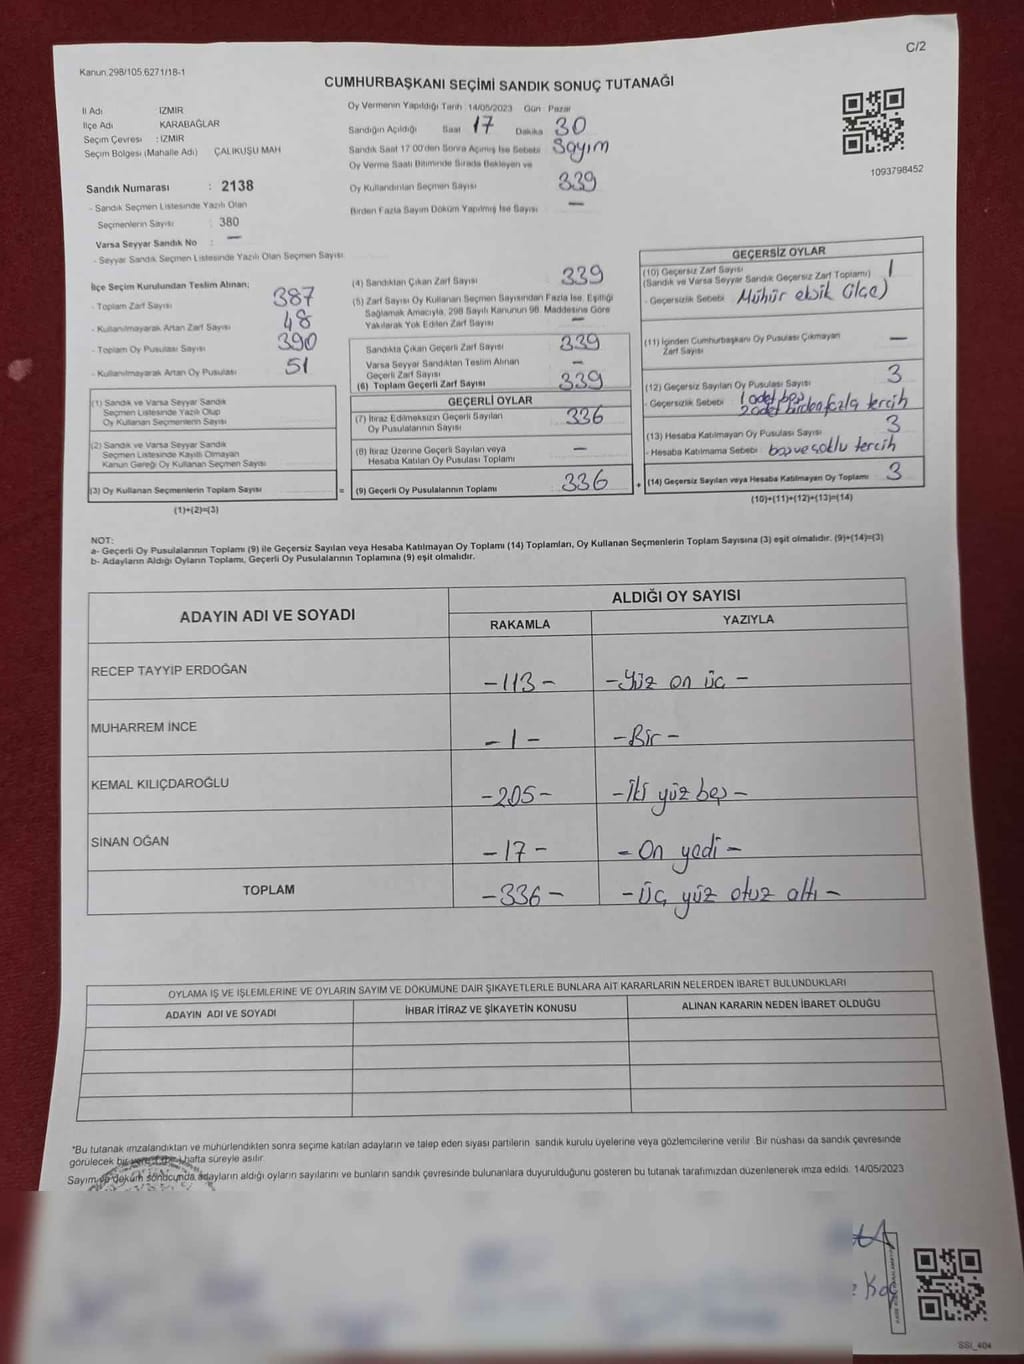 C/2
Kanun 298/105,6271/18-1
CUMHURBAŞKANI SEÇİMİ SANDIK SONUÇ TUTANAĞI
İl Adı İZMİR
İlçe Adı KARABAĞLAR
Seçim Çevresi : İZMİR
Seçim Bölgesi (Mahalle Adı) ÇALIKUŞU MAH
Sandık Numarası : 2138
- Sandık Seçmen Listesinde Yazılı Olan
Seçmenlerin Sayısı : 380
Varsa Seyyar Sandık No : —
- Seyyar Sandık Seçmen Listesinde Yazılı Olan Seçmen Sayısı:
Oy Vermenin Yapıldığı Tarih :14/05/2023 Gün : Pazar
Sandığın Açıldığı Saat 17 Dakika 30
Sandık Saat 17 00'den Sonra Açılmış İse Sebebi Sayım
Oy Verme Saati Bitiminde Sırada Bekleyen ve
Oy Kullandırılan Seçmen Sayısı 339
Birden Fazla Sayım Döküm Yapılmış İse Sayısı —
1093798452
İlçe Seçim Kurulundan Teslim Alınan;
- Toplam Zarf Sayısı 387
- Kullanılmayarak Artan Zarf Sayısı 48
- Toplam Oy Pusulası Sayısı 390
- Kullanılmayarak Artan Oy Pusulası 51
(1) Sandık ve Varsa Seyyar Sandık
Seçmen Listesinde Yazılı Olup
Oy Kullanan Seçmenlerin Sayısı
(2) Sandık ve Varsa Seyyar Sandık
Seçmen Listesinde Kayıtlı Olmayan
Kanun Gereği Oy Kullanan Seçmen Sayısı
(3) Oy Kullanan Seçmenlerin Toplam Sayısı =
(1)+(2)=(3)
(4) Sandıktan Çıkan Zarf Sayısı 339
(5) Zarf Sayısı Oy Kullanan Seçmen Sayısından Fazla İse, Eşitliği
Sağlamak Amacıyla, 298 Sayılı Kanunun 98. Maddesine Göre
Yakılarak Yok Edilen Zarf Sayısı —
Sandıkta Çıkan Geçerli Zarf Sayısı 339
Varsa Seyyar Sandıktan Teslim Alınan
Geçerli Zarf Sayısı —
(6) Toplam Geçerli Zarf Sayısı 339
GEÇERLİ OYLAR
(7) İtiraz Edilmeksizin Geçerli Sayılan
Oy Pusulalarının Sayısı 336
(8) İtiraz Üzerine Geçerli Sayılan veya
Hesaba Katılan Oy Pusulası Toplamı —
(9) Geçerli Oy Pusulalarının Toplamı 336 +
GEÇERSİZ OYLAR
(10) Geçersiz Zarf Sayısı 1
(Sandık ve Varsa Seyyar Sandık Geçersiz Zarf Toplamı)
- Geçersizlik Sebebi Mühür eksik (ilçe)
(11) İçinden Cumhurbaşkanı Oy Pusulası Çıkmayan
Zarf Sayısı —
(12) Geçersiz Sayılan Oy Pusulası Sayısı 3
- Geçersizlik Sebebi 1 adet boş
2 adet birden fazla tercih
(13) Hesaba Katılmayan Oy Pusulası Sayısı 3
- Hesaba Katılmama Sebebi boş ve çoklu tercih
(14) Geçersiz Sayılan veya Hesaba Katılmayan Oy Toplamı 3
(10)+(11)+(12)+(13)=(14)
NOT:
a- Geçerli Oy Pusulalarının Toplamı (9) ile Geçersiz Sayılan veya Hesaba Katılmayan Oy Toplamı (14) Toplamları, Oy Kullanan Seçmenlerin Toplam Sayısına (3) eşit olmalıdır. (9)+(14)=(3)
b- Adayların Aldığı Oyların Toplamı, Geçerli Oy Pusulalarının Toplamına (9) eşit olmalıdır.
ADAYIN ADI VE SOYADI ALDIĞI OY SAYISI
RAKAMLA YAZIYLA
RECEP TAYYİP ERDOĞAN -113- -Yüz on üç-
MUHARREM İNCE -1- -Bir-
KEMAL KILIÇDAROĞLU -205- -İki yüz beş-
SİNAN OĞAN -17- -On yedi-
TOPLAM -336- -Üç yüz otuz altı-
OYLAMA İŞ VE İŞLEMLERİNE VE OYLARIN SAYIM VE DÖKÜMÜNE DAİR ŞİKAYETLERLE BUNLARA AİT KARARLARIN NELERDEN İBARET BULUNDUKLARI
ADAYIN ADI VE SOYADI İHBAR İTİRAZ VE ŞİKAYETİN KONUSU ALINAN KARARIN NEDEN İBARET OLDUĞU
*Bu tutanak imzalandıktan ve mühürlendikten sonra seçime katılan adayların ve talep eden siyasi partilerin sandık kurulu üyelerine veya gözlemcilerine verilir .Bir nüshası da sandık çevresinde
görülecek bir yere hafta süreyle asılır.
Sayım ve döküm sonucunda adayların aldığı oyların sayılarını ve bunların sandık çevresinde bulunanlara duyurulduğunu gösteren bu tutanak tarafımızdan düzenlenerek imza edildi. 14/05/2023
SSI_404